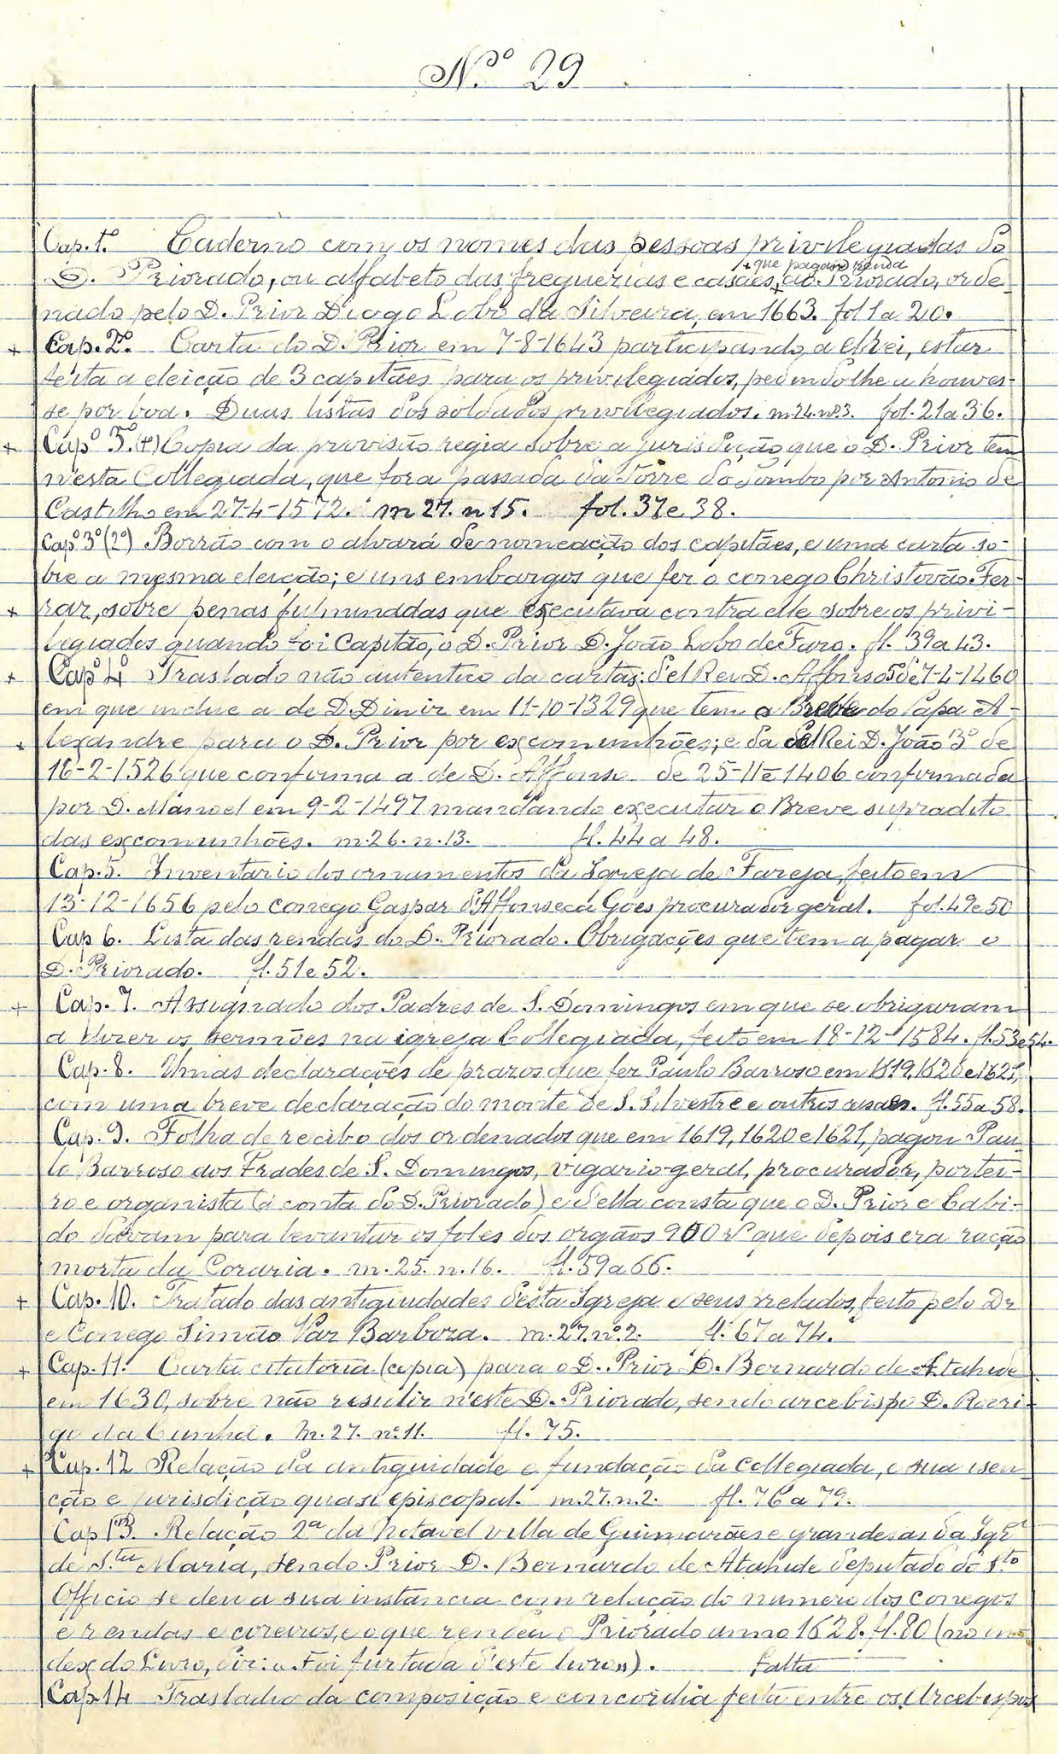 Nº 29
Cap. 1º Caderno com os nomes das pessoas privilegiadas do
+ que pagão renda
D. Priorado, ou alfabeto das freguezias e casaes, + ao Priorado, orde-
nado pelo D. Prior Diogo Lobo da Silveira, em 1663. fol 1 a 20.
+ Cap. 2º. Carta do D. Prior em 7-8-1643 participando a elrei, estar
feita a eleição de 3 capitães para os privilegiados, pedindo lhe a houves-
se por boa. Duas listas dos soldados privilegiados. m. 24. nº 3. fol. 21 a 36.
+ Capº 3º. (+) Copia da provisão regia sobre a jurisdição que o D. Prior tem
n'esta Collegiada, que fora passada da Torre do Tombo por Antonio de
Castilho em 27-4-1572. m 27. n 15. fol. 37 e 38.
Capº 3º (2º) Borrão com o alvará de nomeação dos capitães, e uma carta so-
bre a mesma eleição; e uns embargos que fez o conego Christovão Fer-
+ raz, sobre penas fulminadas que executava contra elle sobre os privi-
legiados quando foi Capitão, o D. Prior D. João Lobo de Faro. fl. 39 a 43.
+ Capº 4º Traslado não autentico da cartas: d'el Rei D. Affonso 5º de 7-4-1460
em que inclue a de D. Diniz em 11-10-1329 que tem o Breve do Papa A-
+ lexandre para o D. Prior por excomunhões; e da d'el Rei D. João 3º de
16-2-1526 que conforma a de D. Affonso de 25-11 e 1406 conformada
por D. Manoel em 9-2-1497 mandando executar o Breve supradito
das excomunhões. m. 26. n. 13. fl. 44 a 48.
Cap. 5. Inventario dos ornamentos da Igreja de Fareja, feito em
13-12-1656 pelo conego Gaspar d'Affonseca Goes procurador geral. fol. 49 e 50
Cap 6. Lista das rendas do D. Priorado. Obrigações que tem a pagar o
D. Priorado. fl. 51 e 52.
+ Cap. 7. Assignado dos Padres de S. Domingos em que se obrigaram
a dizer os sermões na igreja Collegiada, feito em 18-12-1584. fl. 53 e 54.
Cap. 8. Umas declarações de prazos que fez Paulo Barroso em 1619, 1620 e 1621,
com uma breve declaração do monte de S. Silvestre e outros casaes. fl. 55 a 58.
Cap. 9. Folha de recibo dos ordenados que em 1619, 1620 e 1621, pagou Pau-
lo Barroso aos Frades de S. Domingos, vigario geral, procurador, portei-
ro e organista (á conta do D. Priorado) e d'ella consta que o D. Prior e Cabi-
do davam para levantar os foles dos orgãos 900 rs que depois era ração
morta da Coraria. m. 25. n. 16. fl. 59 a 66.
+ Cap. 10. Tratado das antiguidades d'esta Igreja e seus prelados, feito pelo Dr
e Conego Simão Vaz Barboza. m. 27. nº 2. fl. 67 a 74.
+ Cap. 11. Carta citatoria (copia) para o D. Prior D. Bernardo de Atahide
em 1630, sobre não residir n'este D. Priorado, sendo arcebispo D. Rodri-
go da Cunha. m. 27. nº 11. fl. 75.
+ Cap. 12 Relação da antiguidade e fundação da Collegiada, e sua isen-
ção e jurisdição quasi episcopal. m. 27. n. 2. fl. 76 a 79.
Cap 13. Relação 2ª da Notavel villa de Guimarães e grandesas da Igrª
de S.ta Maria, sendo Prior D. Bernardo de Atahide deputado do S.to
Officio se deu a sua instancia com relação do numero dos conegos
e rendas e coreiros, e o que rendeu o Priorado anno 1628. fl. 80 (no in-
dex do Livro, diz: "Foi furtada d'este livro"). Falta
Cap. 14 Traslado da composição e concordia feita entre os Arcebispos